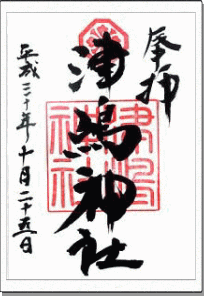 奉拝
津嶋神社
津嶋神社
平成三十年十月二十五日